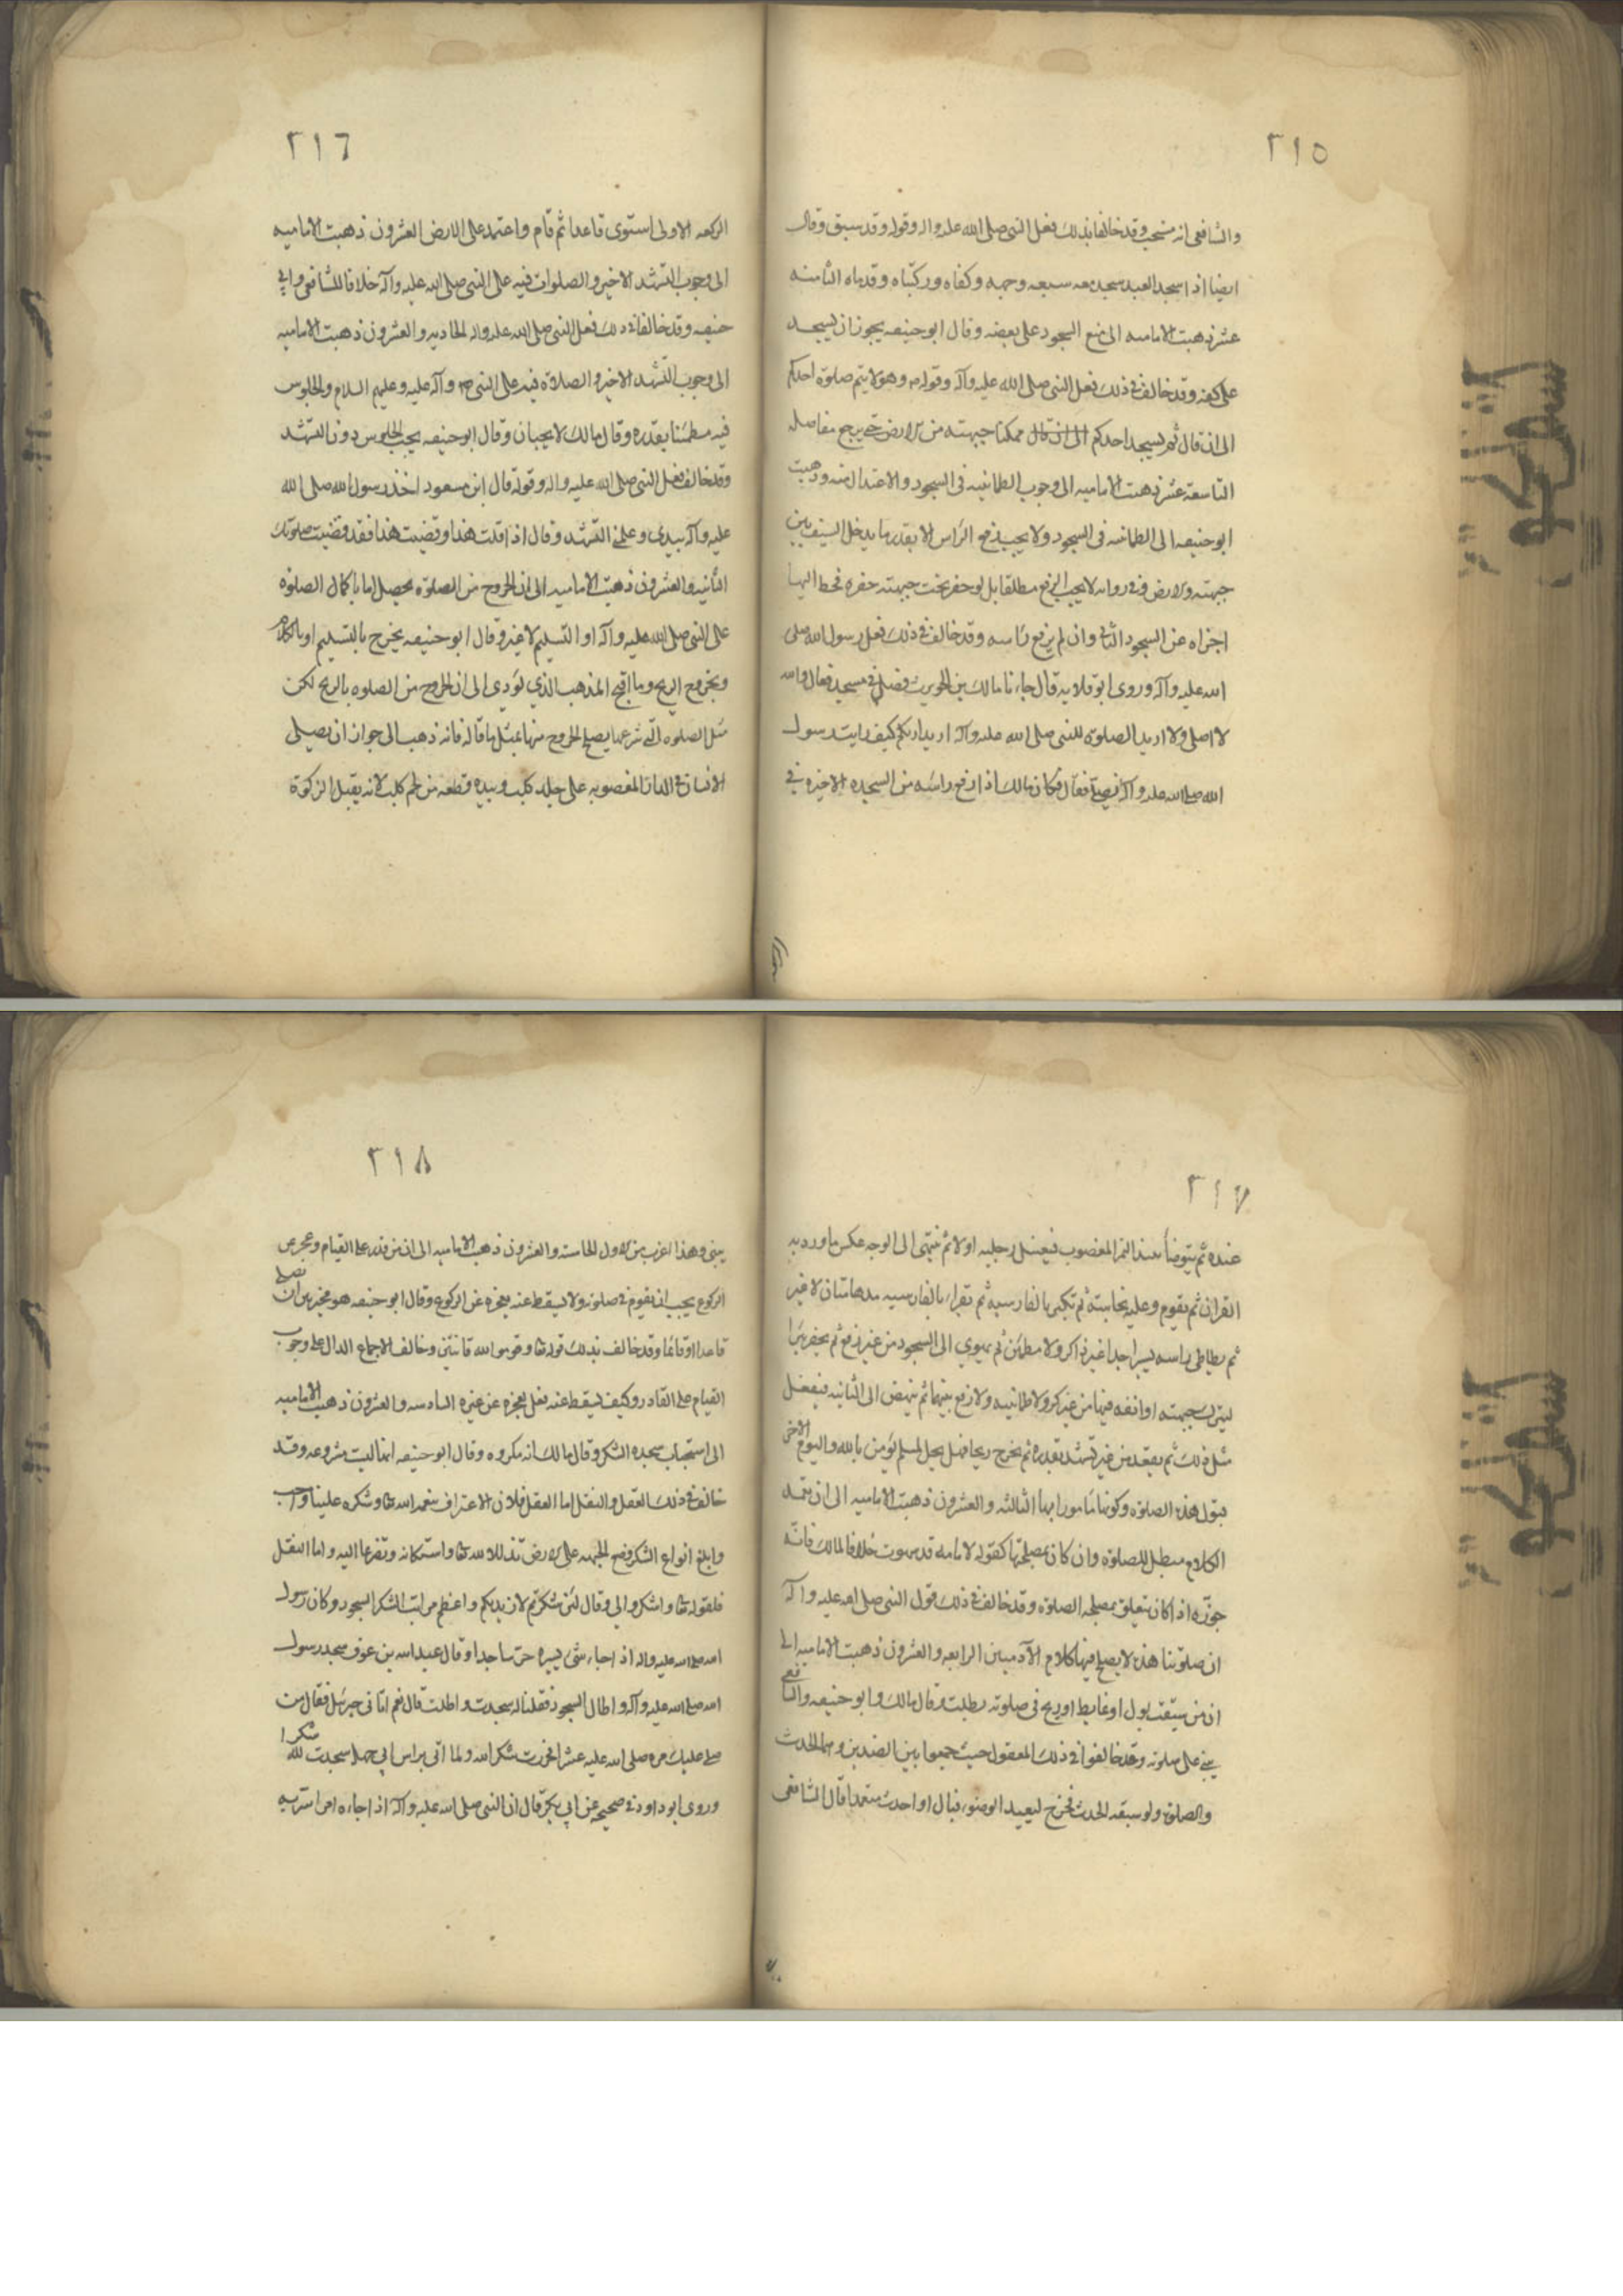 ٣١٥
والشافعي انه مستحب وقد خالفا بذلك فعل النبي صلى الله عليه واله وقوله وقد سبق وقال
ايضا اذا سجد العبد سجد معه سبعه وجهه وكفاه وركبتاه وقدماه الثامنه
عشر ذهبت الاماميه الى منع السجود على بعضه وقال ابو حنيفه يجوز ان يسجد
على كفه وقد خالف في ذلك فعل النبي صلى الله عليه وآله وقوله م وهو لا يتم صلوة احدكم
الى ان قال ثم يسجد احدكم الى ان قال ممكنا جبهته من الارض حتى يرجع مفاصله
التاسعة عشر ذهبت الاماميه الى وجوب الطمانينه في السجود والاعتدال منه وذهبت
ابو حنيفه الى الطمانينه في السجود ولا يجب رفع الراس الا بقدر ما يدخل السيف بين
جبهته والارض وفي روايه لا يجب الرفع مطلقا بل لو حفر تحت جبهته حفره فحط اليها
اجزاه عن السجود الثاني وان لم يرفع راسه وقد خالف في ذلك فعل رسول الله صلى
الله عليه وآله وروى ابو قلابه قال جاءنا مالك بن الحويرث فصلى في مسجد فقال والله
لا اصلي ولا اريد الصلوة للنبي صلى الله عليه وآله اريد اريكم كيف رايت رسول
الله صلى الله عليه وآله يصلي فقال فكان مالك اذا رفع راسه من السجده الاخيره في
٣١٦
الركعه الاولى استوى قاعدا ثم قام واعتمد على الارض العشرون ذهبت الاماميه
الى وجوب التشهد الاخير والصلوات فيه على النبي صلى الله عليه وآله خلافا للشافعي وابي
حنيفه وقد خالفا في ذلك فعل النبي صلى الله عليه واله الحاديه والعشرون ذهبت الاماميه
الى وجوب التشهد الاخير والصلاة فيه على النبي ص وآله عليه وعليهم السلام والجلوس
فيه مطمئنا بقدره وقال مالك لا يجبان وقال ابو حنيفه يجب الجلوس دون التشهد
وقد خالف فعل النبي صلى الله عليه واله وقوله قال ابن مسعود اخذ رسول الله صلى الله
عليه وآله بيدي وعلمني التشهد وقال اذا قلت هذا وقضيت هذا فقد قضيت صلوتك
الثانيه والعشرون ذهبت الاماميه الى ان الخروج من الصلوة يحصل اما باكمال الصلوة
على النبي صلى الله عليه وآله او التسليم لا غير وقال ابو حنيفه يخرج بالتسليم او بالكلام
وبخروج الريح وما اقبح المذهب الذي يؤدي الى ان الخروج من الصلوه بالريح لكن
مثل الصلوه التي شرعها يصلح الخروج منها بمثل ما قاله فانه ذهب الى جواز ان يصلي
الانسان في الدار المغصوبه على جلد كلب وبيده قطعه من لحم كلب لانه يقبل الزكوة
٣١٧
عنده ثم يتوضأ بنبيذ التمر المغصوب فيغسل رجليه اولا ثم ينتهي الى الوجه عكس ما ورد به
القران ثم يقوم وعليه نجاسته ثم يكبر بالفارسيه ثم يقراء بالفارسيه مدهامتان لا غير
ثم يطاطي راسه يسيرا جدا غير ذاكر ولا مطمئن ثم يهوي الى السجود من غير رفع ثم يحفر بئرا
لينزل جبهته او انفه فيها من غير ذكر ولا طمانينه ولا رفع بينهما ثم ينهض الى الثانيه فيفعل
مثل ذلك ثم يقعد من غير تشهد بقدره ثم يخرج ريحا فهل يحل لمسلم يؤمن بالله واليوم الاخر
بقول هذه الصلوة وكونها مامورا بها الثالثه والعشرون ذهبت الاماميه الى ان تعمد
الكلام مبطل للصلوة وان كان بمصلحتها كقوله لامامه قد سهوت خلافا لمالك فانه
جوزه اذا كان يتعلق بمصلحه الصلوة وقد خالف في ذلك قول النبي صلى الله عليه وآله
ان صلوتنا هذه لا يصلح فيها كلام الآدميين الرابعه والعشرون ذهبت الاماميه الى
ان من سبقه بول او غايط او ريح في صلوته بطلت وقال مالك وابو حنيفه والشافعي
يبني على صلوته وقد خالفوا في ذلك المعقول حيث جمعوا بين الضدين وهما الحدث
والصلوة ولو سبقه الحدث فخرج ليعيد الوضوء فبال او احدث متعمدا قال الشافعي
٣١٨
يبنى وهذا اغرب من الاول الخامسه والعشرون ذهبت الاماميه الى ان من قدر على القيام وعجز عن
الركوع يجب ان يقوم في صلوته ولا يسقط عنه بعجزه عن الركوع وقال ابو حنيفه هو مخير بين ان يصلي
قاعدا او قائما وقد خالف بذلك قوله تعا وقوموا لله قانتين وخالف الاجماع الدال على وجوب
القيام على القادر وكيف يسقط عنه فعل بعجزه عن غيره السادسه والعشرون ذهبت الاماميه
الى استحباب سجده الشكر وقال مالك انه مكروه وقال ابو حنيفه انها ليست مشروعه وقد
خالف في ذلك العقل والنقل اما العقل فلان الاعتراف بنعمه الله تعا وشكره علينا واجب
وابلغ انواع الشكر وضع الجبهه على الارض تذللا لله تعا واستكانه وتضرعا اليه واما النقل
فلقوله تعا واشكروا لي وقال لئن شكرتم لازيدنكم واعظم مراتب الشكر السجود وكان رسول
الله صلى الله عليه واله اذا جاءه شئ يسره خر ساجدا وقال عبد الله بن عوف سجد رسول
الله صلى الله عليه وآله واطال السجود فقلنا له سجدت واطلت قال نعم اتاني جبرئيل فقال من
صلى عليك مره صلى الله عليه عشرا فخررت شكرا لله ولما اتى براس ابي جهل سجدت لله شكرا
وروى ابو داود في صحيحه عن ابي بكر قال ان النبي صلى الله عليه وآله اذا جاءه امر استر به